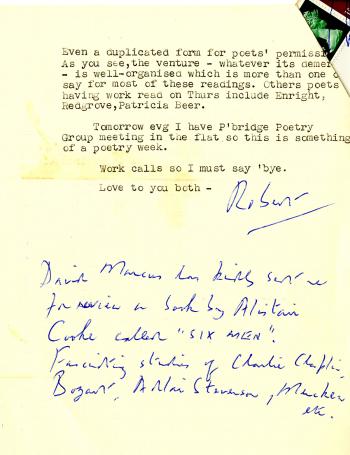 Even a duplicated form for poets' permissi
As you see,the venture - whatever its demer
- is well-organised which is more than one c
say for most of these readings. Others poets
having work read on Thurs include Enright,
Redgrove,Patricia Beer.
Tomorrow evg I have P'bridge Poetry
Group meeting in the flat so this is something
of a poetry week.
Work calls so I must say 'bye.
Love to you both -
Robert
David Marcus has kindly sent me
for review a book by Alistair
Cooke called "SIX MEN".
Fascinating studies of Charlie Chaplin,
Bogart, Adlai Stevenson, Mencken
etc.